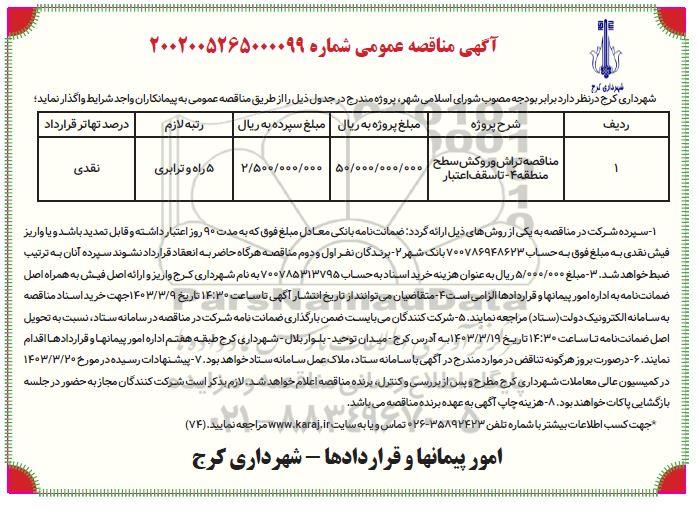 آگهی مناقصه عمومی شماره ۲۰۰۲۰۰۵۲۶۵۰۰۰۰۹۹
شهرداری کرج
شهرداری کرج درنظر دارد برابر بودجه مصوب شورای اسلامی شهر، پروژه مندرج در جدول ذیل را از طریق مناقصه عمومی به پیمانکاران واجد شرایط واگذار نماید؛
ردیف شرح پروژه مبلغ پروژه به ریال مبلغ سپرده به ریال رتبه لازم درصد تهاتر قرارداد
۱ مناقصه تراش و روکش سطح منطقه ۴- تا سقف اعتبار ۵۰/۰۰۰/۰۰۰/۰۰۰ ۲/۵۰۰/۰۰۰/۰۰۰ ۵ راه و ترابری نقدی
۱-سپرده شرکت در مناقصه به یکی از روش‌های ذیل ارائه گردد: ضمانت‌نامه بانکی معادل مبلغ فوق که به مدت ۹۰ روز اعتبار داشته و قابل تمدید باشد و یا واریز
فیش نقدی به مبلغ فوق به حساب ۷۰۰۷۸۶۹۴۸۶۲۳ بانک شهر ۲-برندگان نفر اول و دوم مناقصه هرگاه حاضر به انعقاد قرارداد نشوند سپرده آنان به ترتیب
ضبط خواهد شد. ۳-مبلغ ۵/۰۰۰/۰۰۰ ریال به عنوان هزینه خرید اسناد به حساب ۷۰۰۷۸۵۳۱۳۷۹۵ به نام شهرداری کرج واریز و ارائه اصل فیش به همراه اصل
ضمانت‌نامه به اداره امور پیمانها و قراردادها الزامی است ۴-متقاضیان می‌توانند از تاریخ انتشار آگهی تا ساعت ۱۴:۳۰ تاریخ ۱۴۰۳/۳/۹ جهت خرید اسناد مناقصه
به سامانه الکترونیک دولت (ستاد) مراجعه نمایند. ۵-شرکت کنندگان می‌بایست ضمن بارگذاری ضمانت نامه شرکت در مناقصه در سامانه ستاد، نسبت به تحویل
اصل ضمانت نامه تا ساعت ۱۴:۳۰ تاریخ ۱۴۰۳/۳/۱۹ به آدرس کرج - میدان توحید - بلوار بلال - شهرداری کرج طبقه هفتم اداره امور پیمانها و قراردادها اقدام
نمایند. ۶-درصورت بروز هرگونه تناقض در موارد مندرج در آگهی با سامانه ستاد، ملاک عمل سامانه ستاد خواهد بود. ۷-پیشنهادات رسیده در مورخ ۱۴۰۳/۳/۲۰
در کمیسیون عالی معاملات شهرداری کرج مطرح و پس از بررسی و کنترل، برنده مناقصه اعلام خواهد شد. لازم بذکر است شرکت کنندگان مجاز به حضور در جلسه
بازگشایی پاکات خواهند بود. ۸-هزینه چاپ آگهی به عهده برنده مناقصه می باشد.
*جهت کسب اطلاعات بیشتر با شماره تلفن ۳۵۸۹۲۴۲۳-۰۲۶ تماس و یا به سایت www.karaj.ir مراجعه نمایید. (۷۴)
امور پیمانها و قراردادها – شهرداری کرج